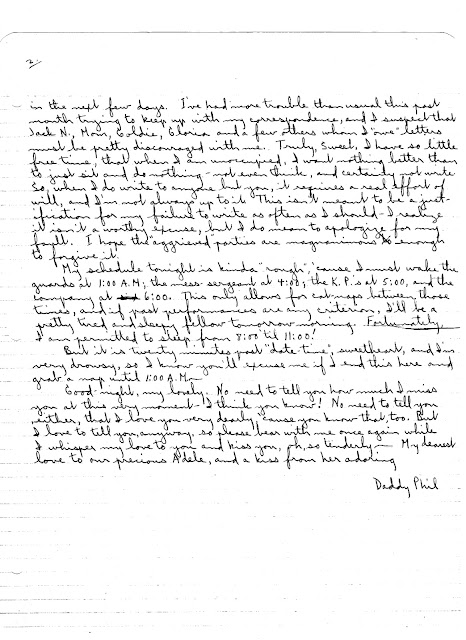 2.
in the next few days. I've had more trouble than usual this past
month trying to keep up with my correspondence, and I suspect that
Jack N., Mom, Goldie, Gloria and a few others whom I "owe" letters
must be pretty discouraged with me. Truly, Sweet, I have so little
free time, that when I am unoccupied, I want nothing better than
to just sit and do nothing - not even think, and certainly not write
So, when I do write to anyone but you, it requires a real effort of
will, and I'm not always up to it. This isn't meant to be a just-
ification for my failure to write as often as I should - I realize
it isn't a worthy excuse, but I do mean to apologize for my
fault. I hope the "aggrieved" parties are magnanimous enough
to forgive it.
My schedule tonight is kinda "rough", 'cause I must wake the
guards at 1:00 A.M., the mess-sergeant at 4:00, the K.P.'s at 5:00, and the
company at 6:00. This only allows for catnaps between those
times, and if past performances are any criterion, I'll be a
pretty tired and sleepy fellow tomorrow morning. Fortunately,
I am permitted to sleep from 8:00 'til 11:00!
But it is twenty minutes past "date time", sweetheart, and I'm
very drowsy, so I know you'll excuse me if I end this here and
grab a nap until 1:00 A.M.
Good night, my lovely. No need to tell you how much I miss
you at this very moment - I think you know! No need to tell you
either, that I love you very dearly 'cause you know that, too. But
I love to tell you, anyway, so please bear with me once again while
I whisper my love to you and kiss you, oh, so tenderly — My dearest
love to our precious Adele, and a kiss from her adoring
Daddy Phil